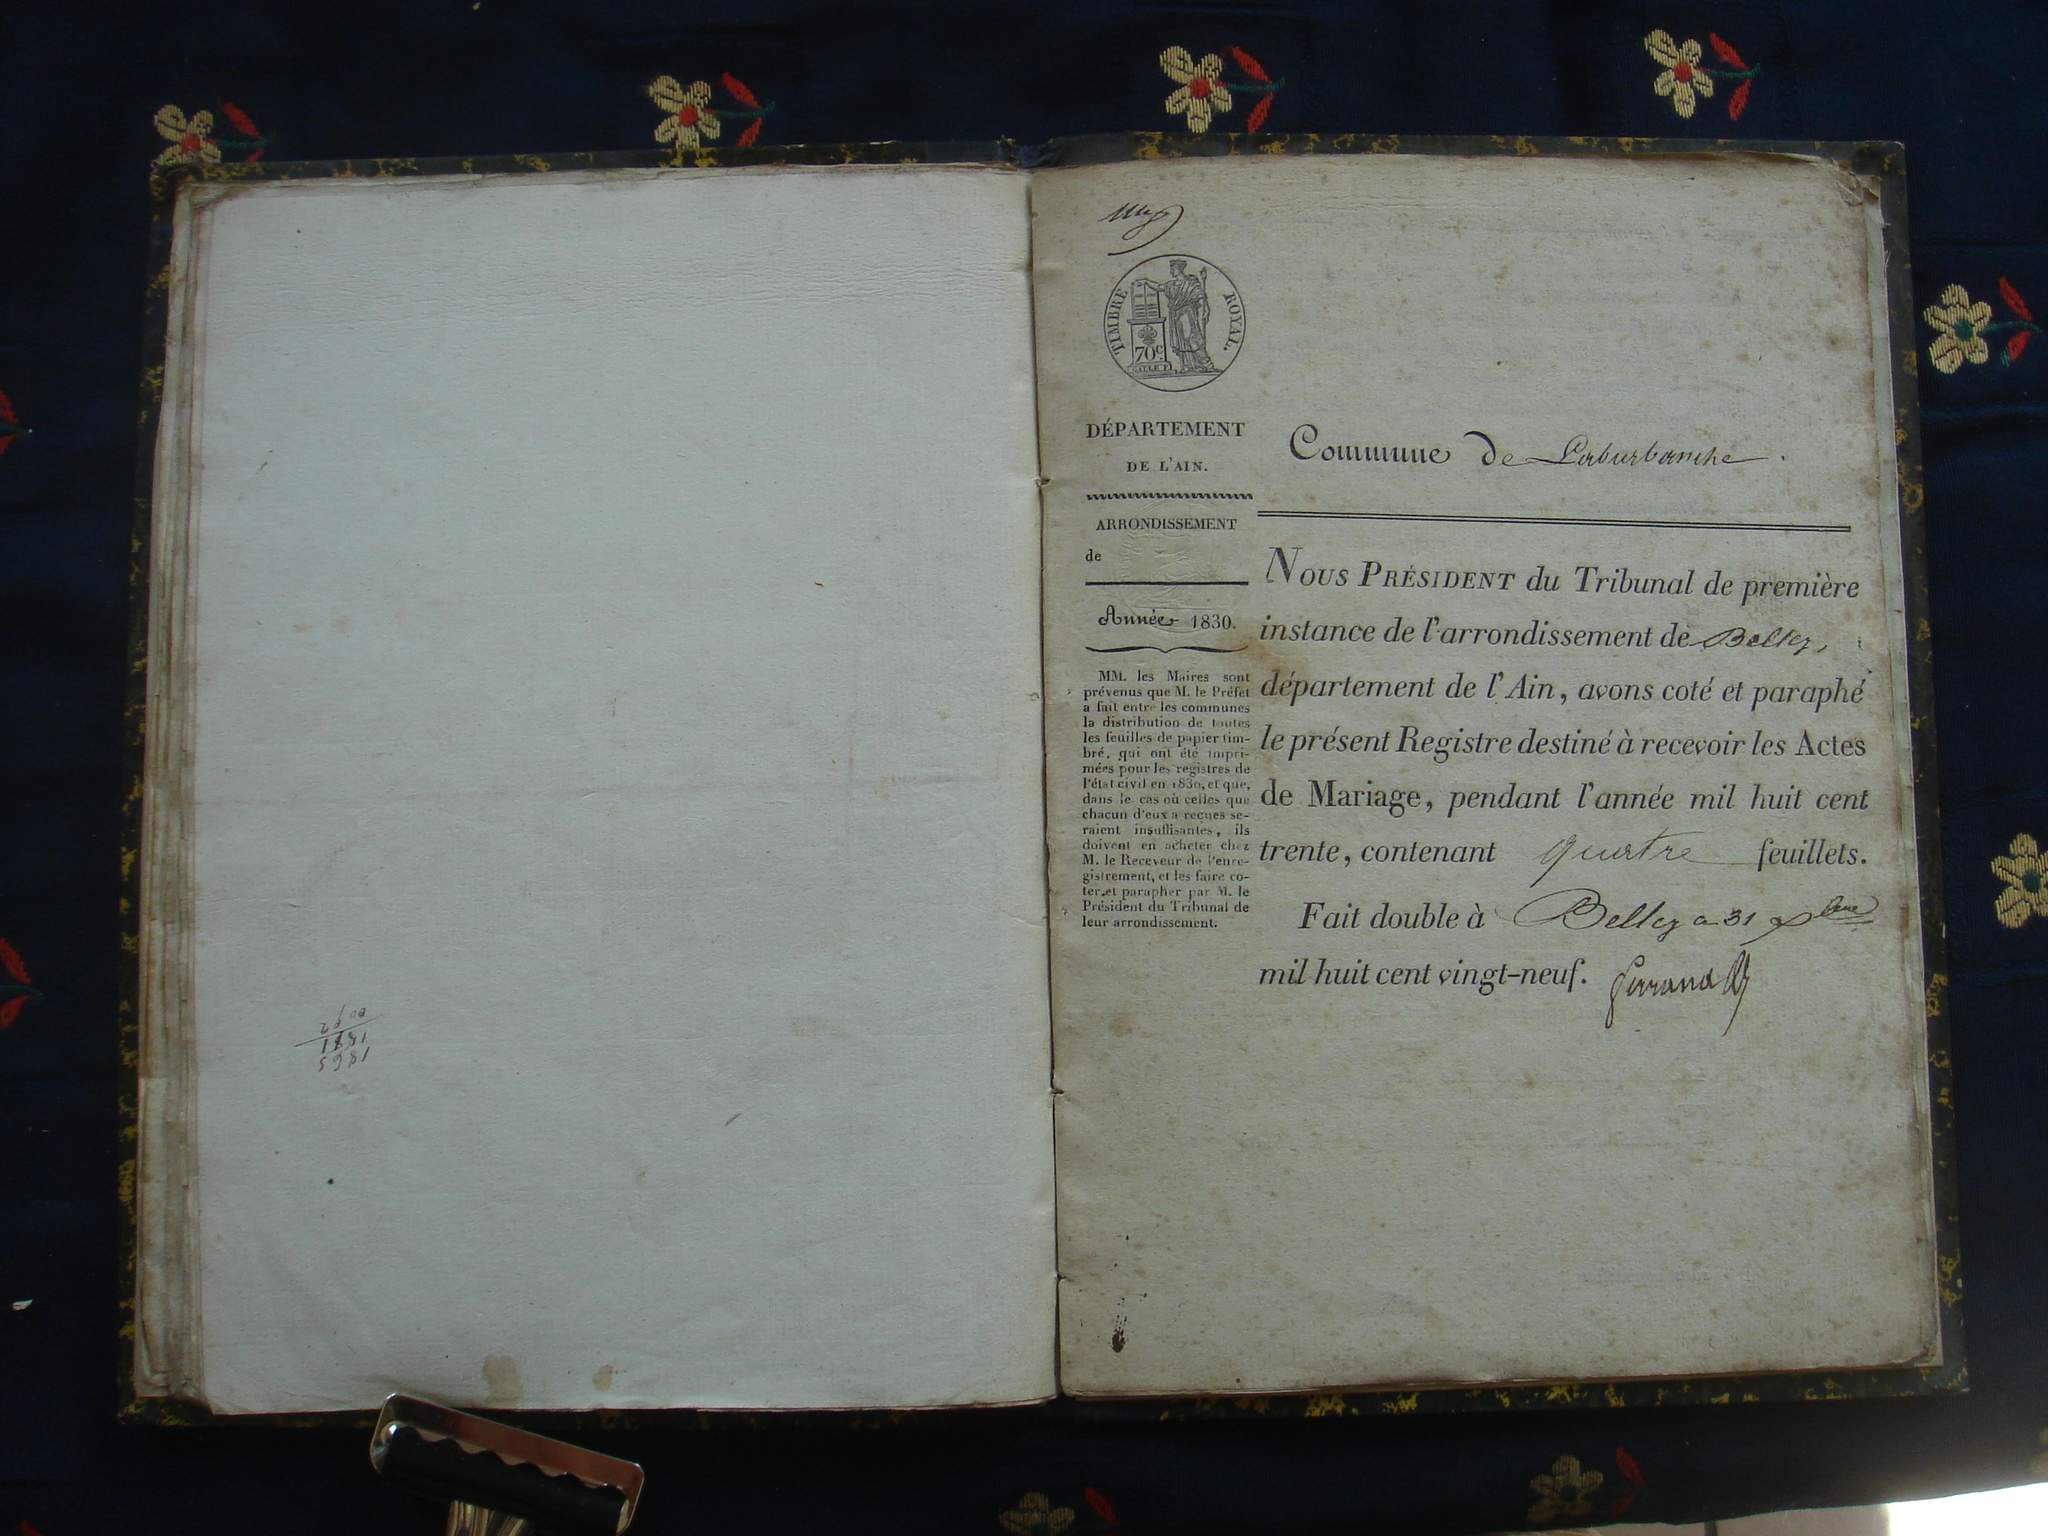 1865
1821
TIMBRE ROYAL.
70c.
DÉPARTEMENT
DE L'AIN.
ARRONDISSEMENT
de
Année 1830.
MM. les Maires sont
prévenus que M. le Préfet
a fait entre les communes
la distribution de toutes
les feuilles de papier tim-
bré, qui ont été impri-
mées pour les registres de
l'état civil en 1830, et que,
dans le cas où celles que
chacun d'eux a reçues se-
raient insuffisantes, ils
doivent en acheter chez
M. le Receveur de l'enre-
gistrement, et les faire co-
ter et parapher par M. le
Président du Tribunal de
leur arrondissement.
Commune de Laburbanche.
NOUS PRÉSIDENT du Tribunal de première
instance de l'arrondissement de Belley,
département de l'Ain, avons coté et paraphé
le présent Registre destiné à recevoir les Actes
de Mariage, pendant l'année mil huit cent
trente, contenant quatre feuillets.
Fait double à Belley a 31 xbre
mil huit cent vingt-neuf.